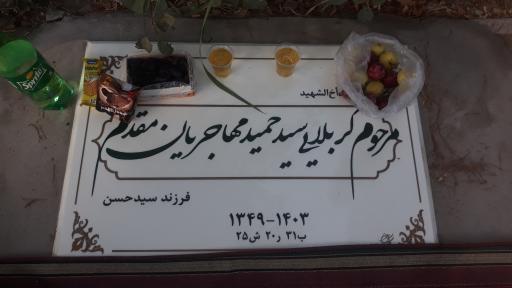 اخ‌الشهید
مرحوم کربلایی سید حمید مهاجریان مقدم
فرزند سید حسن
۱۳۴۹-۱۴۰۳
ب۳۱ ر۲۰ ش۲۵
Sprite